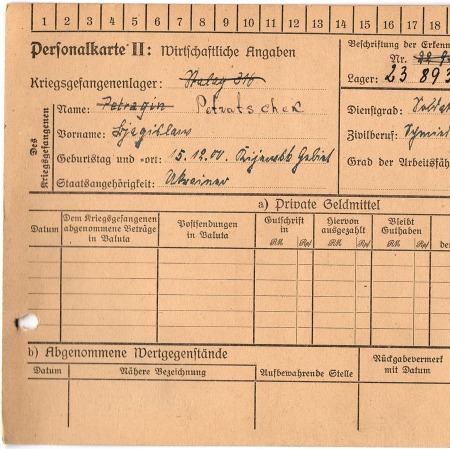 1 2 3 4 5 6 7 8 9 10 11 12 13 14 15 16 17 18
Personalkarte II: Wirtschaftliche Angaben
Beschriftung der Erkenn
Nr.
Kriegsgefangenenlager: Stalag 316
Lager: 23 893
Des Kriegsgefangenen
Name: Petragin Petratschek
Dienstgrad: Soldat
Vorname:
Zivilberuf: Schmied
Geburtstag und -ort: 15.12.00. Kijewsk Gebiet
Grad der Arbeitsfäh
Staatsangehörigkeit: Ukrainer
a) Private Geldmittel
Datum
Dem Kriegsgefangenen abgenommene Beträge in Valuta
Postsendungen in Valuta
Gutschrift in
RM Rpf
Hiervon ausgezahlt
RM Rpf
Bleibt Guthaben
RM Rpf
de
b) Abgenommene Wertgegenstände
Rückgabevermerk mit Datum
Datum
Nähere Bezeichnung
Aufbewahrende Stelle